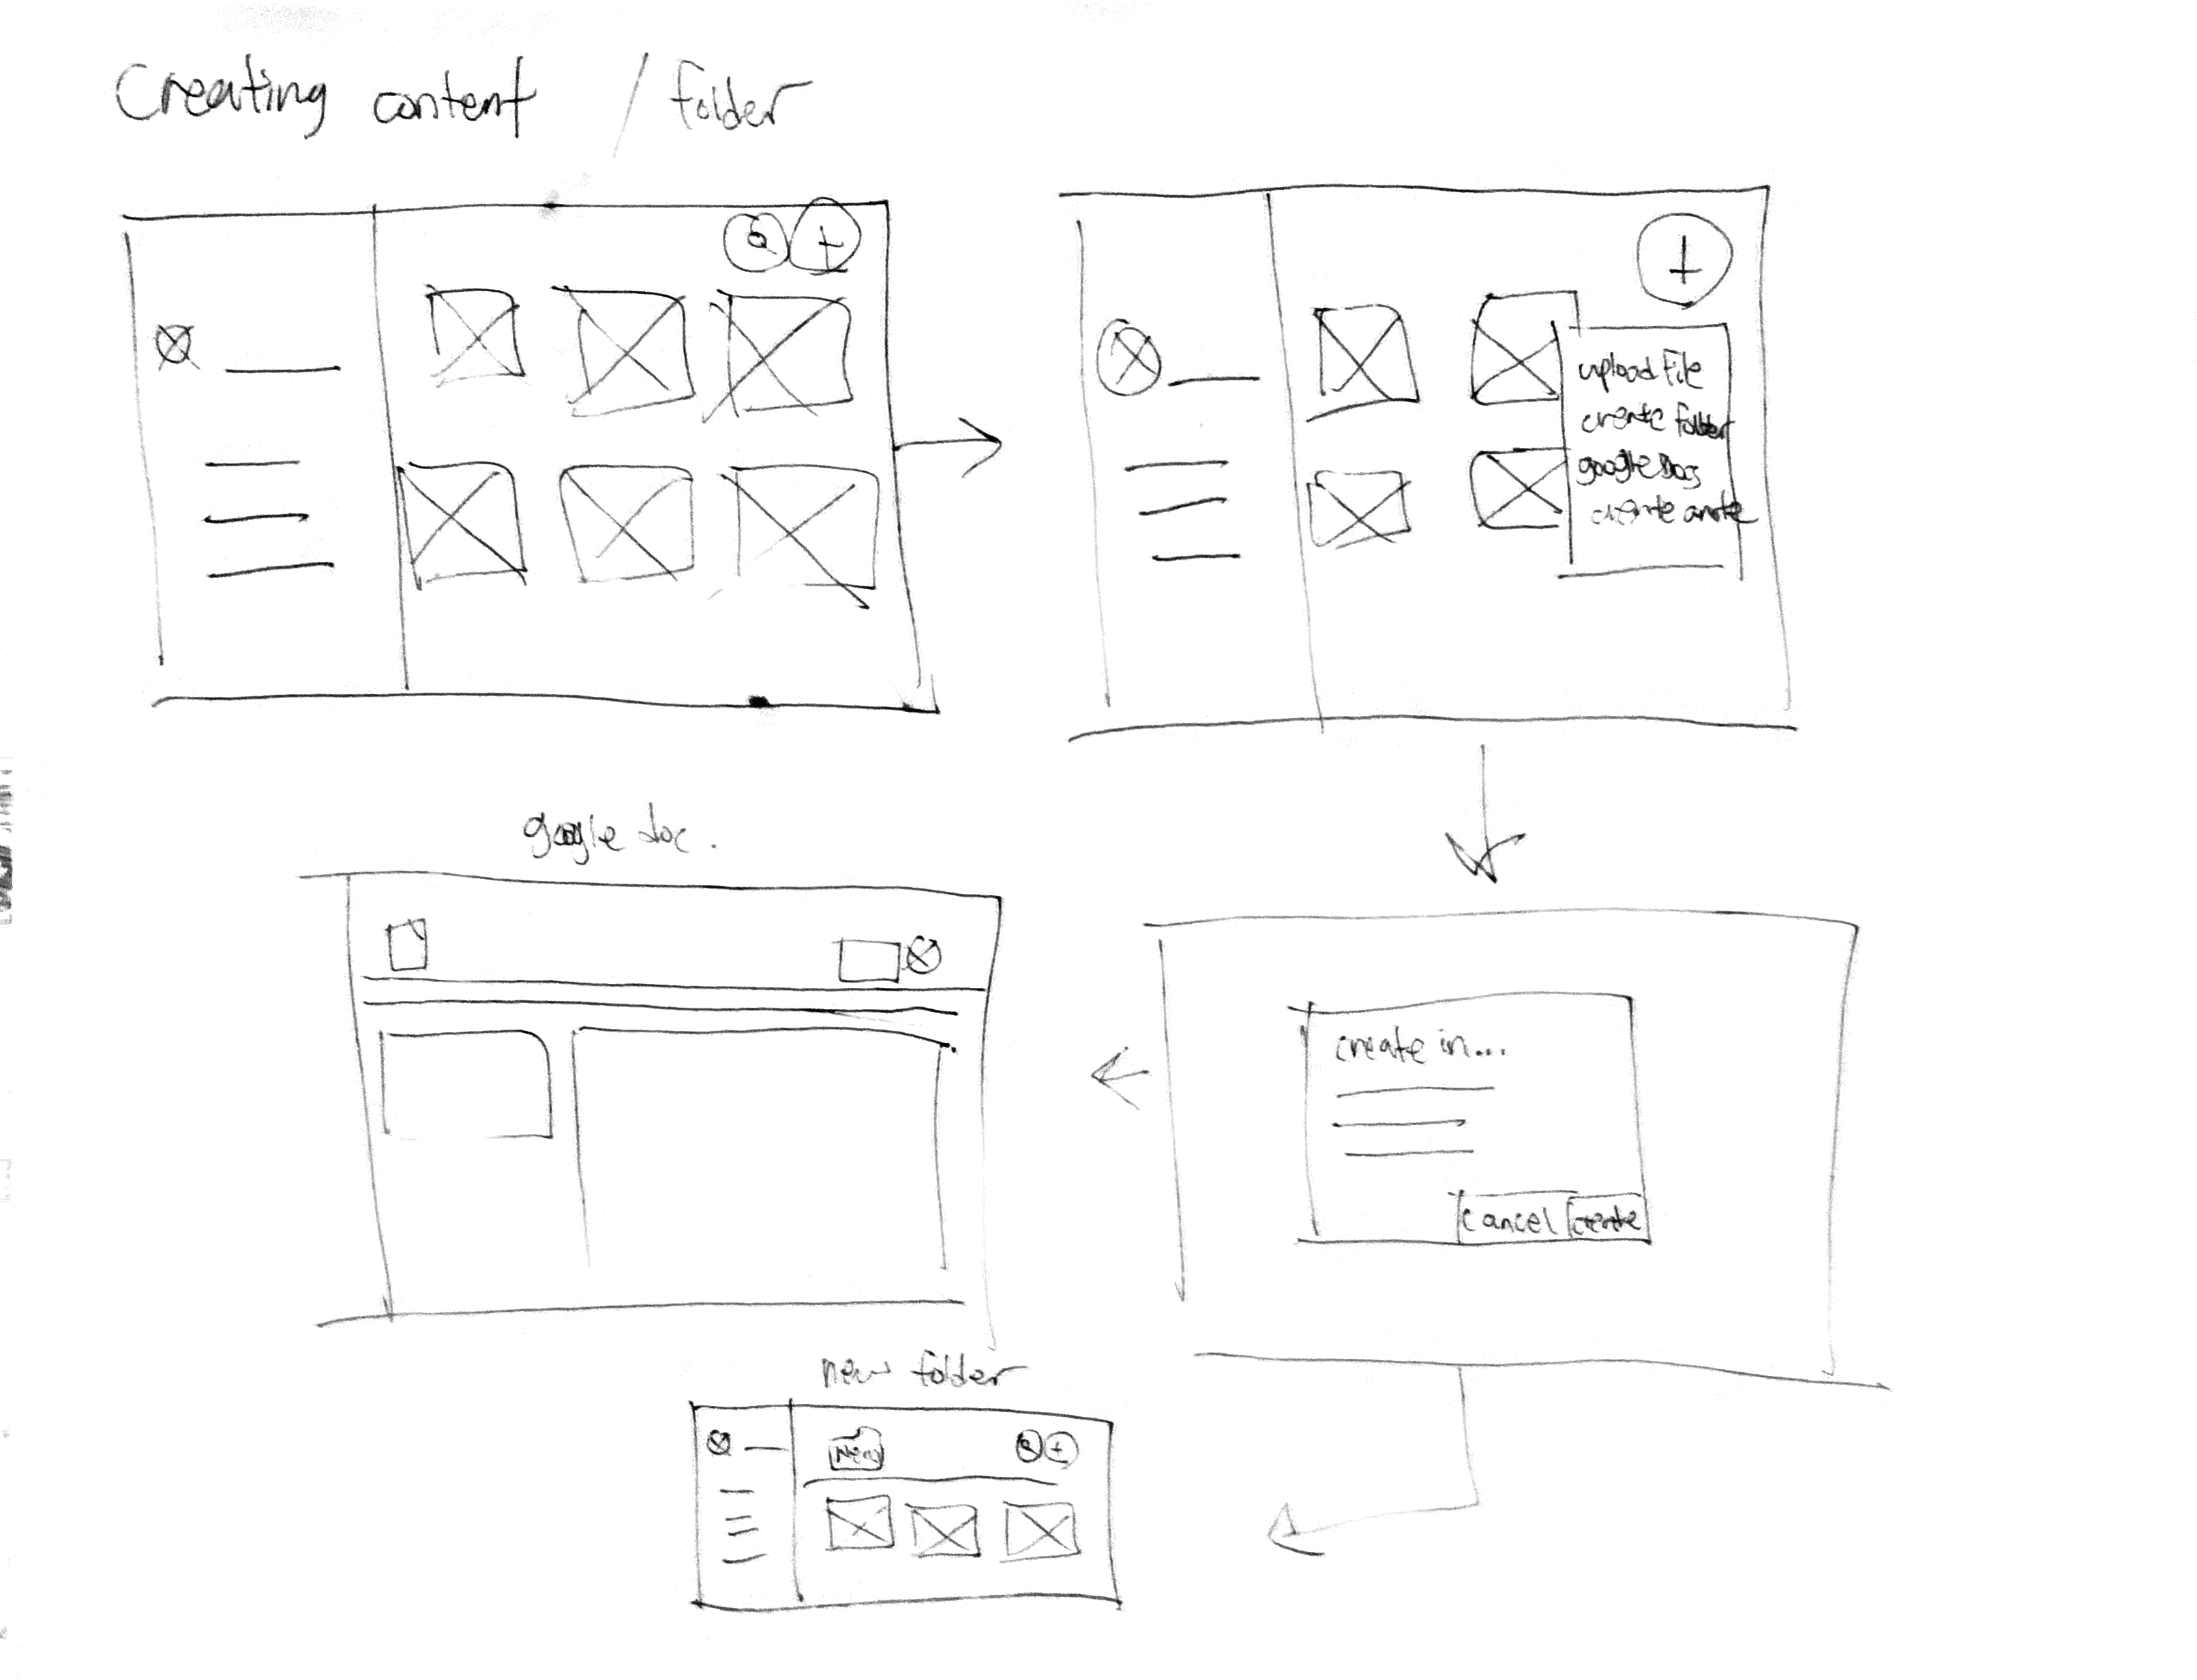 Creating content / folder
upload file
create folder
google Docs
create a note
google doc.
create in...
cancel create
new folder